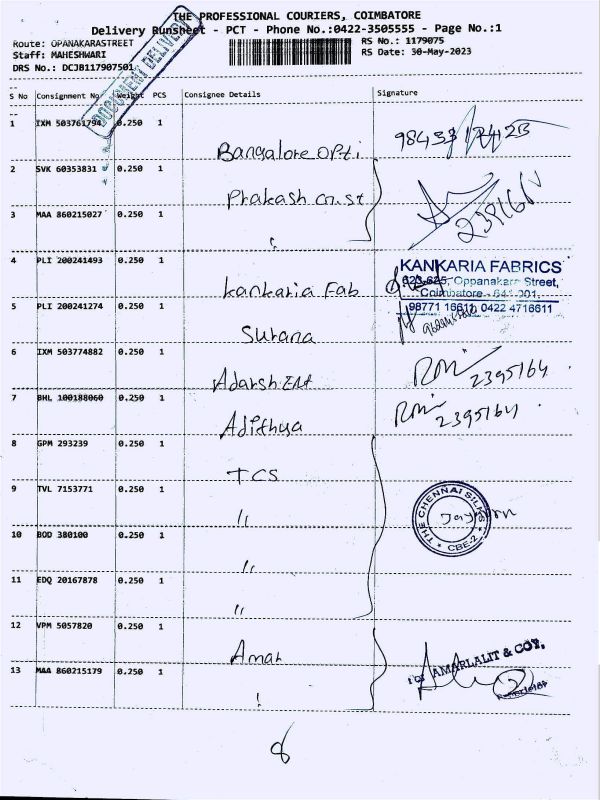 THE PROFESSIONAL COURIERS, COIMBATORE
Delivery Runsheet - PCT - Phone No.:0422-3505555 - Page No.:1
Route: OPANAKARASTREET
RS No.: 1179075
Staff: MAHESHWARI
RS Date: 30-May-2023
DRS No.: DCJB117907501
DOCUMENT DELIVERY
S No Consignment No. Weight PCS Consignee Details Signature
1 IXM 503761794 0.250 1 Bangalore opti
2 SVK 60353831 0.250 1 Prakash const
3 MAA 860215027 0.250 1
4 PLI 200241493 0.250 1 Kankaria Fab
KANKARIA FABRICS
623-625, Oppanakara Street,
Coimbatore - 641 001.
98771 16611, 0422 4716611
5 PLI 200241274 0.250 1 Surana
6 IXM 503774882 0.250 1 Adarsh Ent 2395164
7 BHL 100188060 0.250 1 Adithya 2395164
8 GPM 293239 0.250 1 TCS
9 TVL 7153771 0.250 1 "
THE CHENNAI SILKS
CBE-2
10 BOD 380100 0.250 1 "
11 EDQ 20167878 0.250 1 "
12 VPM 5057820 0.250 1 Amar
For AMARLALIT & COY.
13 MAA 860215179 0.250 1
8